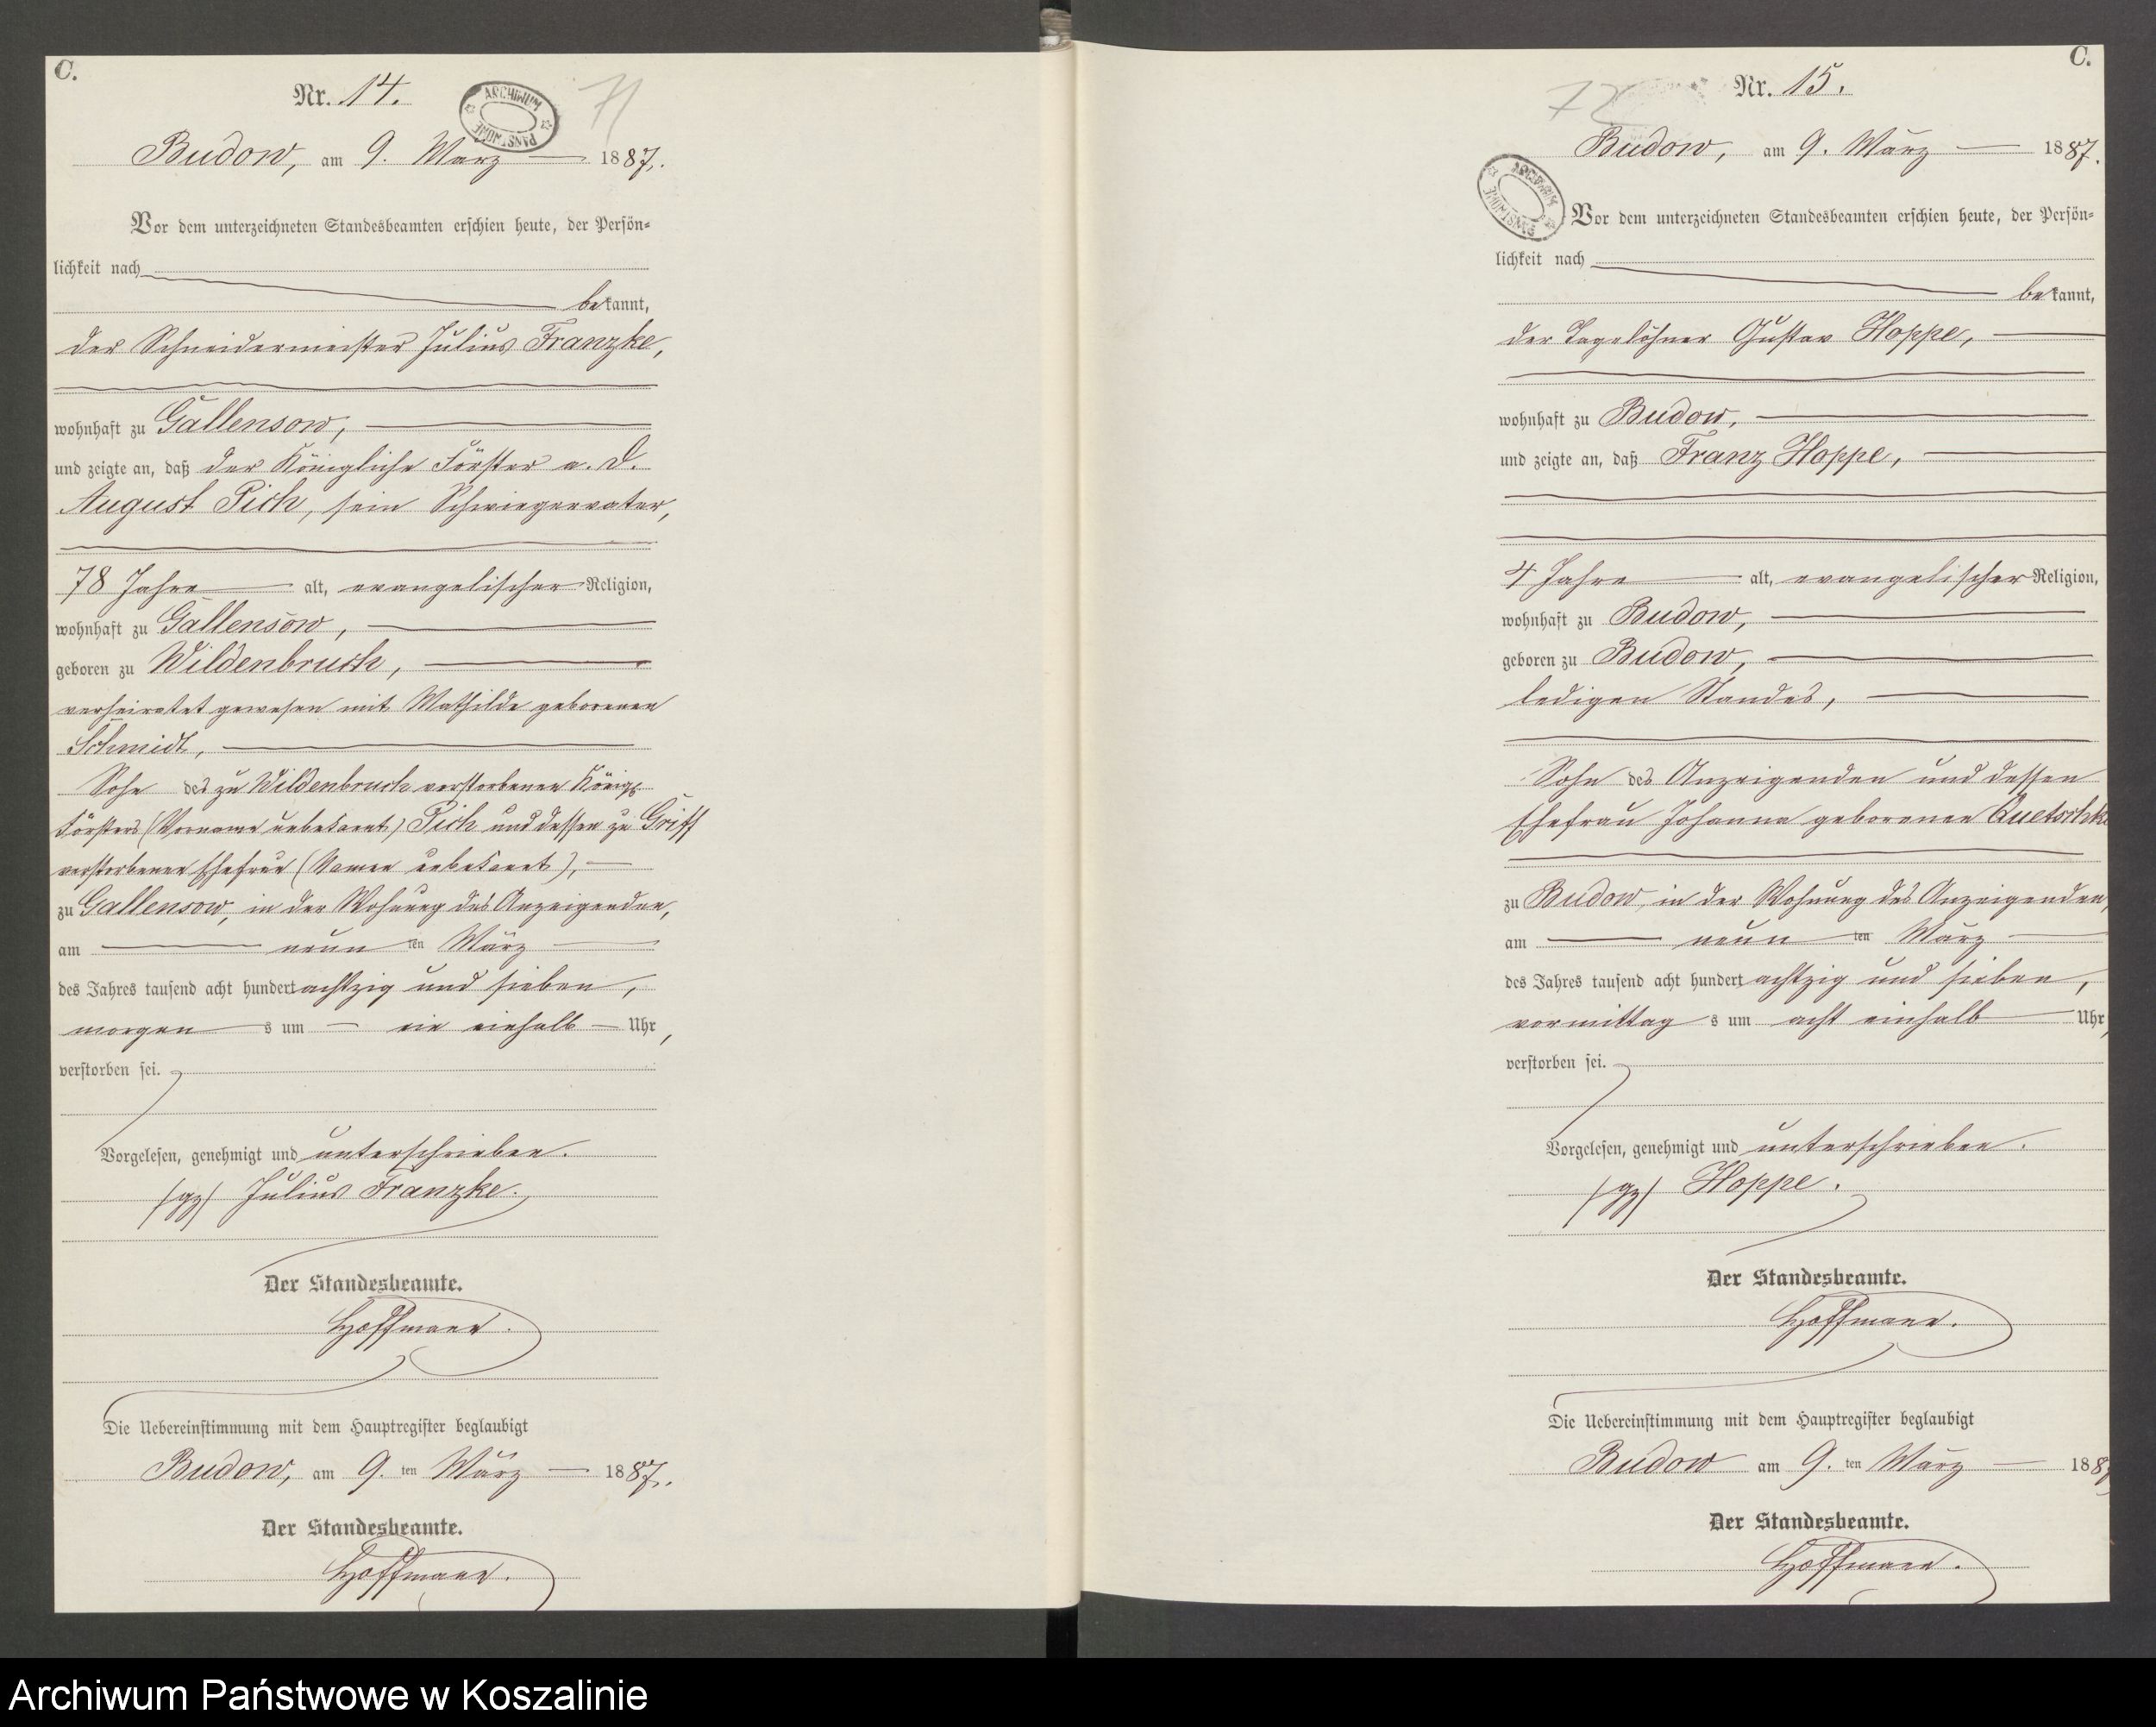 C.
Nr. 14.
ARCHIWUM PAŃSTWOWE
71
Budow, am 9. März 1887.
Vor dem unterzeichneten Standesbeamten erschien heute, der Persön-
lichkeit nach
bekannt,
der Schneidermeister Julius Franzke,
wohnhaft zu Gallensow,
und zeigte an, daß der Königliche Förster a. D.
August Pich, sein Schwiegervater,
78 Jahre alt, evangelischer Religion,
wohnhaft zu Gallensow,
geboren zu Wildenbruch,
verheiratet gewesen mit Mathilde geborenen
Schmidt,
Sohn des zu Wildenbruch verstorbenen Königl.
Försters (Vorname unbekannt) Pich und dessen zu Griff
verstorbenen Ehefrau (Namen unbekannt),
zu Gallensow, in der Wohnung des Anzeigenden,
am neunten März
des Jahres tausend acht hundert achtzig und sieben,
morgens um ein einhalb Uhr,
verstorben sei.
Vorgelesen, genehmigt und unterschrieben.
(gz) Julius Franzke.
Der Standesbeamte.
Hoffmann.
Die Uebereinstimmung mit dem Hauptregister beglaubigt
Budow, am 9.ten März 1887.
Der Standesbeamte.
Hoffmann.
C.
Nr. 15.
72
Budow, am 9. März 1887.
ARCHIWUM PAŃSTWOWE
Vor dem unterzeichneten Standesbeamten erschien heute, der Persön-
lichkeit nach
bekannt,
der Tagelöhner Gustav Hoppe,
wohnhaft zu Budow,
und zeigte an, daß Franz Hoppe,
4 Jahre alt, evangelischer Religion,
wohnhaft zu Budow,
geboren zu Budow,
ledigen Standes,
Sohn des Anzeigenden und dessen
Ehefrau Johanna geborenen Quetschke
zu Budow, in der Wohnung des Anzeigenden,
am neunten März
des Jahres tausend acht hundert achtzig und sieben,
vormittags um acht einhalb Uhr,
verstorben sei.
Vorgelesen, genehmigt und unterschrieben.
(gz) Hoppe.
Der Standesbeamte.
Hoffmann.
Die Uebereinstimmung mit dem Hauptregister beglaubigt
Budow am 9.ten März 1887
Der Standesbeamte.
Hoffmann.
Archiwum Państwowe w Koszalinie